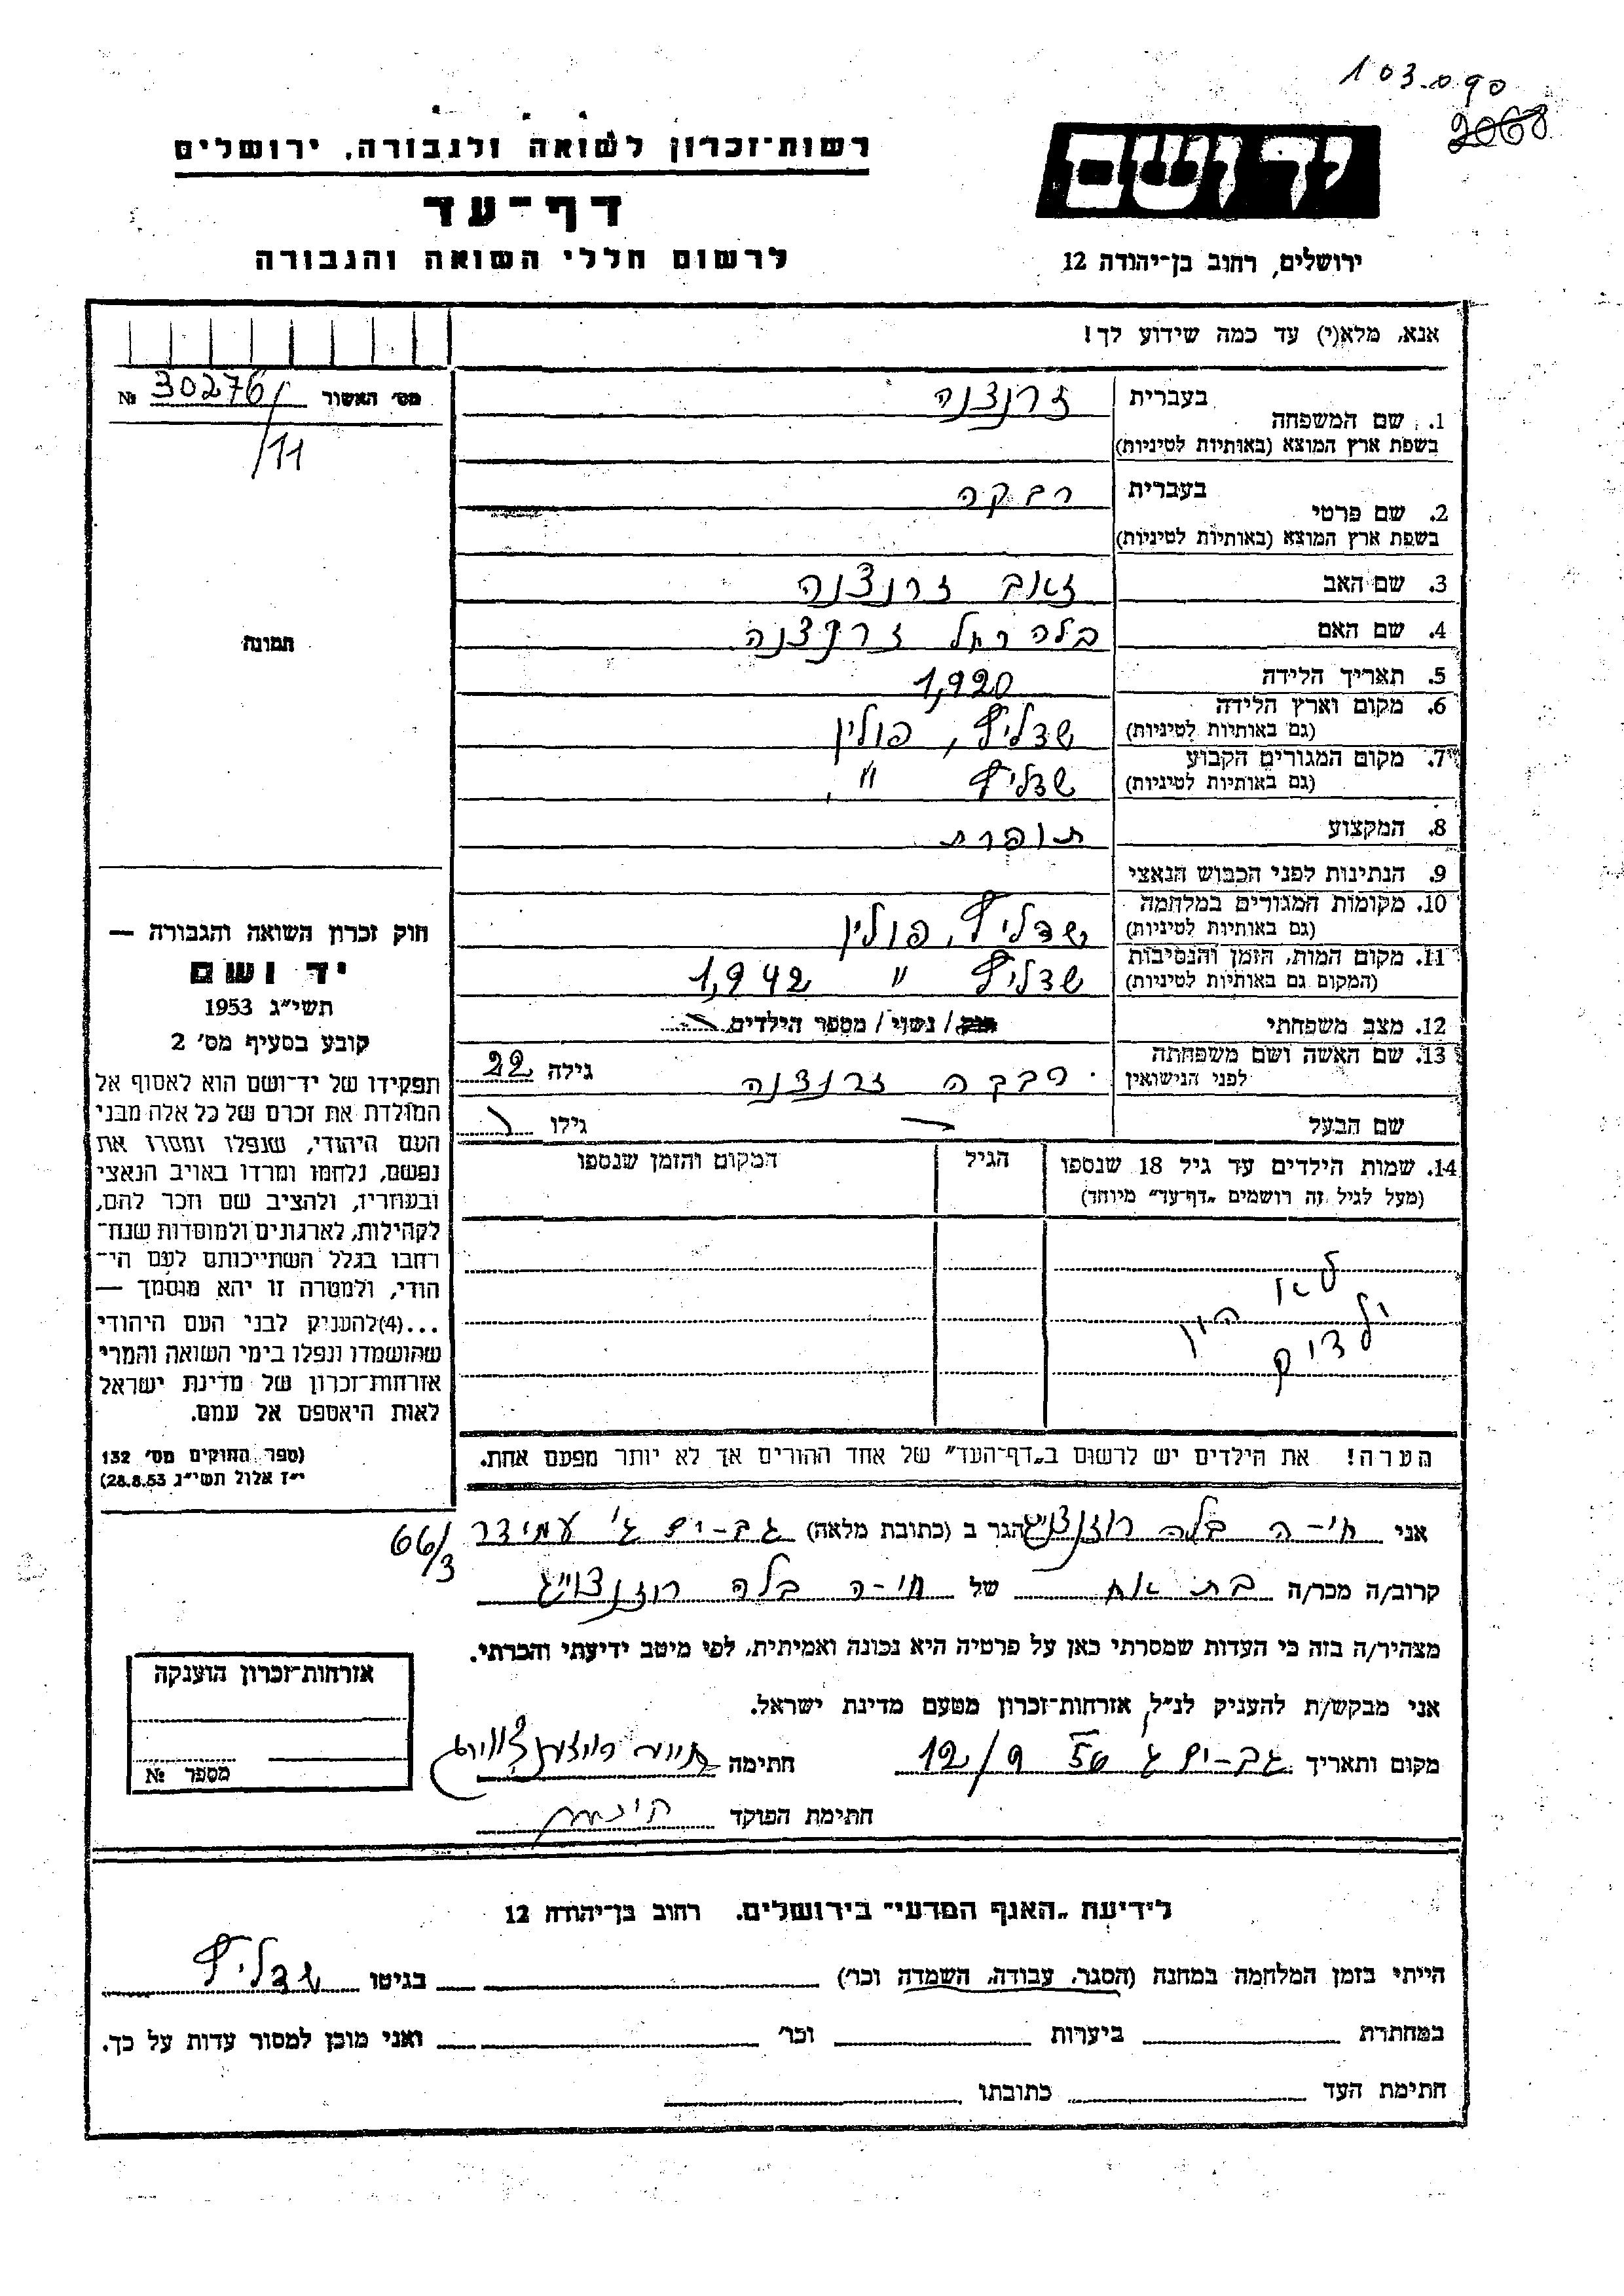 103.090
2068
רשות־זכרון לשואה ולגבורה, ירושלים
דף־עד
לרשום חללי השואה והגבורה
יד ושם
ירושלים, רחוב בן־יהודה 12
אנא, מלא(י) עד כמה שידוע לך!
מס׳ האשור № 30276/
/11
תמונה
1. שם המשפחה בעברית זרנצנה
בשפת ארץ המוצא (באותיות לטיניות)
2. שם פרטי בעברית רבקה
בשפת ארץ המוצא (באותיות לטיניות)
3. שם האב זאב זרנצנה
4. שם האם בלה רחל זרנצנה
5. תאריך הלידה 1,920
6. מקום וארץ הלידה שדליץ, פולין
(גם באותיות לטיניות)
7. מקום המגורים הקבוע שדליץ "
(גם באותיות לטיניות)
8. המקצוע תופרת
9. הנתינות לפני הכבוש הנאצי
10. מקומות המגורים במלחמה שדליץ, פולין
(גם באותיות לטיניות)
11. מקום המות, הזמן והנסיבות שדליץ " 1,942
(המקום גם באותיות לטיניות)
12. מצב משפחתי רווק / נשוי / מספר הילדים
13. שם האשה ושם משפחתה לפני הנישואין רבקה זרנצנה גילה 22
שם הבעל — גילו
14. שמות הילדים עד גיל 18 שנספו הגיל המקום והזמן שנספו
(מעל לגיל זה רושמים „דף־עד" מיוחד)
לא היו
ילדים
הערה! את הילדים יש לרשום ב„דף־העד" של אחד ההורים אך לא יותר מפעם אחת.
חוק זכרון השואה והגבורה —
יד ושם
תשי"ג 1953
קובע בסעיף מס׳ 2
תפקידו של יד־ושם הוא לאסוף אל
המולדת את זכרם של כל אלה מבני
העם היהודי, שנפלו ומסרו את
נפשם, נלחמו ומרדו באויב הנאצי
ובעוזריו, ולהציב שם וזכר להם,
לקהילות, לארגונים ולמוסדות שנח־
רבו בגלל השתייכותם לעם הי־
הודי, ולמטרה זו יהא מוסמך —
...(4)להעניק לבני העם היהודי
שהושמדו ונפלו בימי השואה והמרי
אזרחות־זכרון של מדינת ישראל
לאות היאספם אל עמם.
(ספר החוקים מס׳ 132
י"ז אלול תשי"ג 28.8.53)
אני חי-ה בלה רוזנצוייג הגר ב (כתובת מלאה) גב-ים ג' עמידר 66/3
קרוב/ה מכר/ה בת אח של חי-ה בלה רוזנצוייג
מצהיר/ה בזה כי העדות שמסרתי כאן על פרטיה היא נכונה ואמיתית, לפי מיטב ידיעתי והכרתי.
אני מבקש/ת להעניק לנ"ל אזרחות־זכרון מטעם מדינת ישראל.
מקום ותאריך גב-ים ג 12/9 56 חתימה
חתימת הפוקד
אזרחות־זכרון הוענקה
מספר №
לידיעת „האגף המדעי" בירושלים, רחוב בן־יהודה 12
הייתי בזמן המלחמה במחנה (הסגר, עבודה, השמדה וכו׳) בגיטו שדליץ
במחתרת ביערות וכו׳ ואני מוכן למסור עדות על כך.
חתימת העד כתובתו